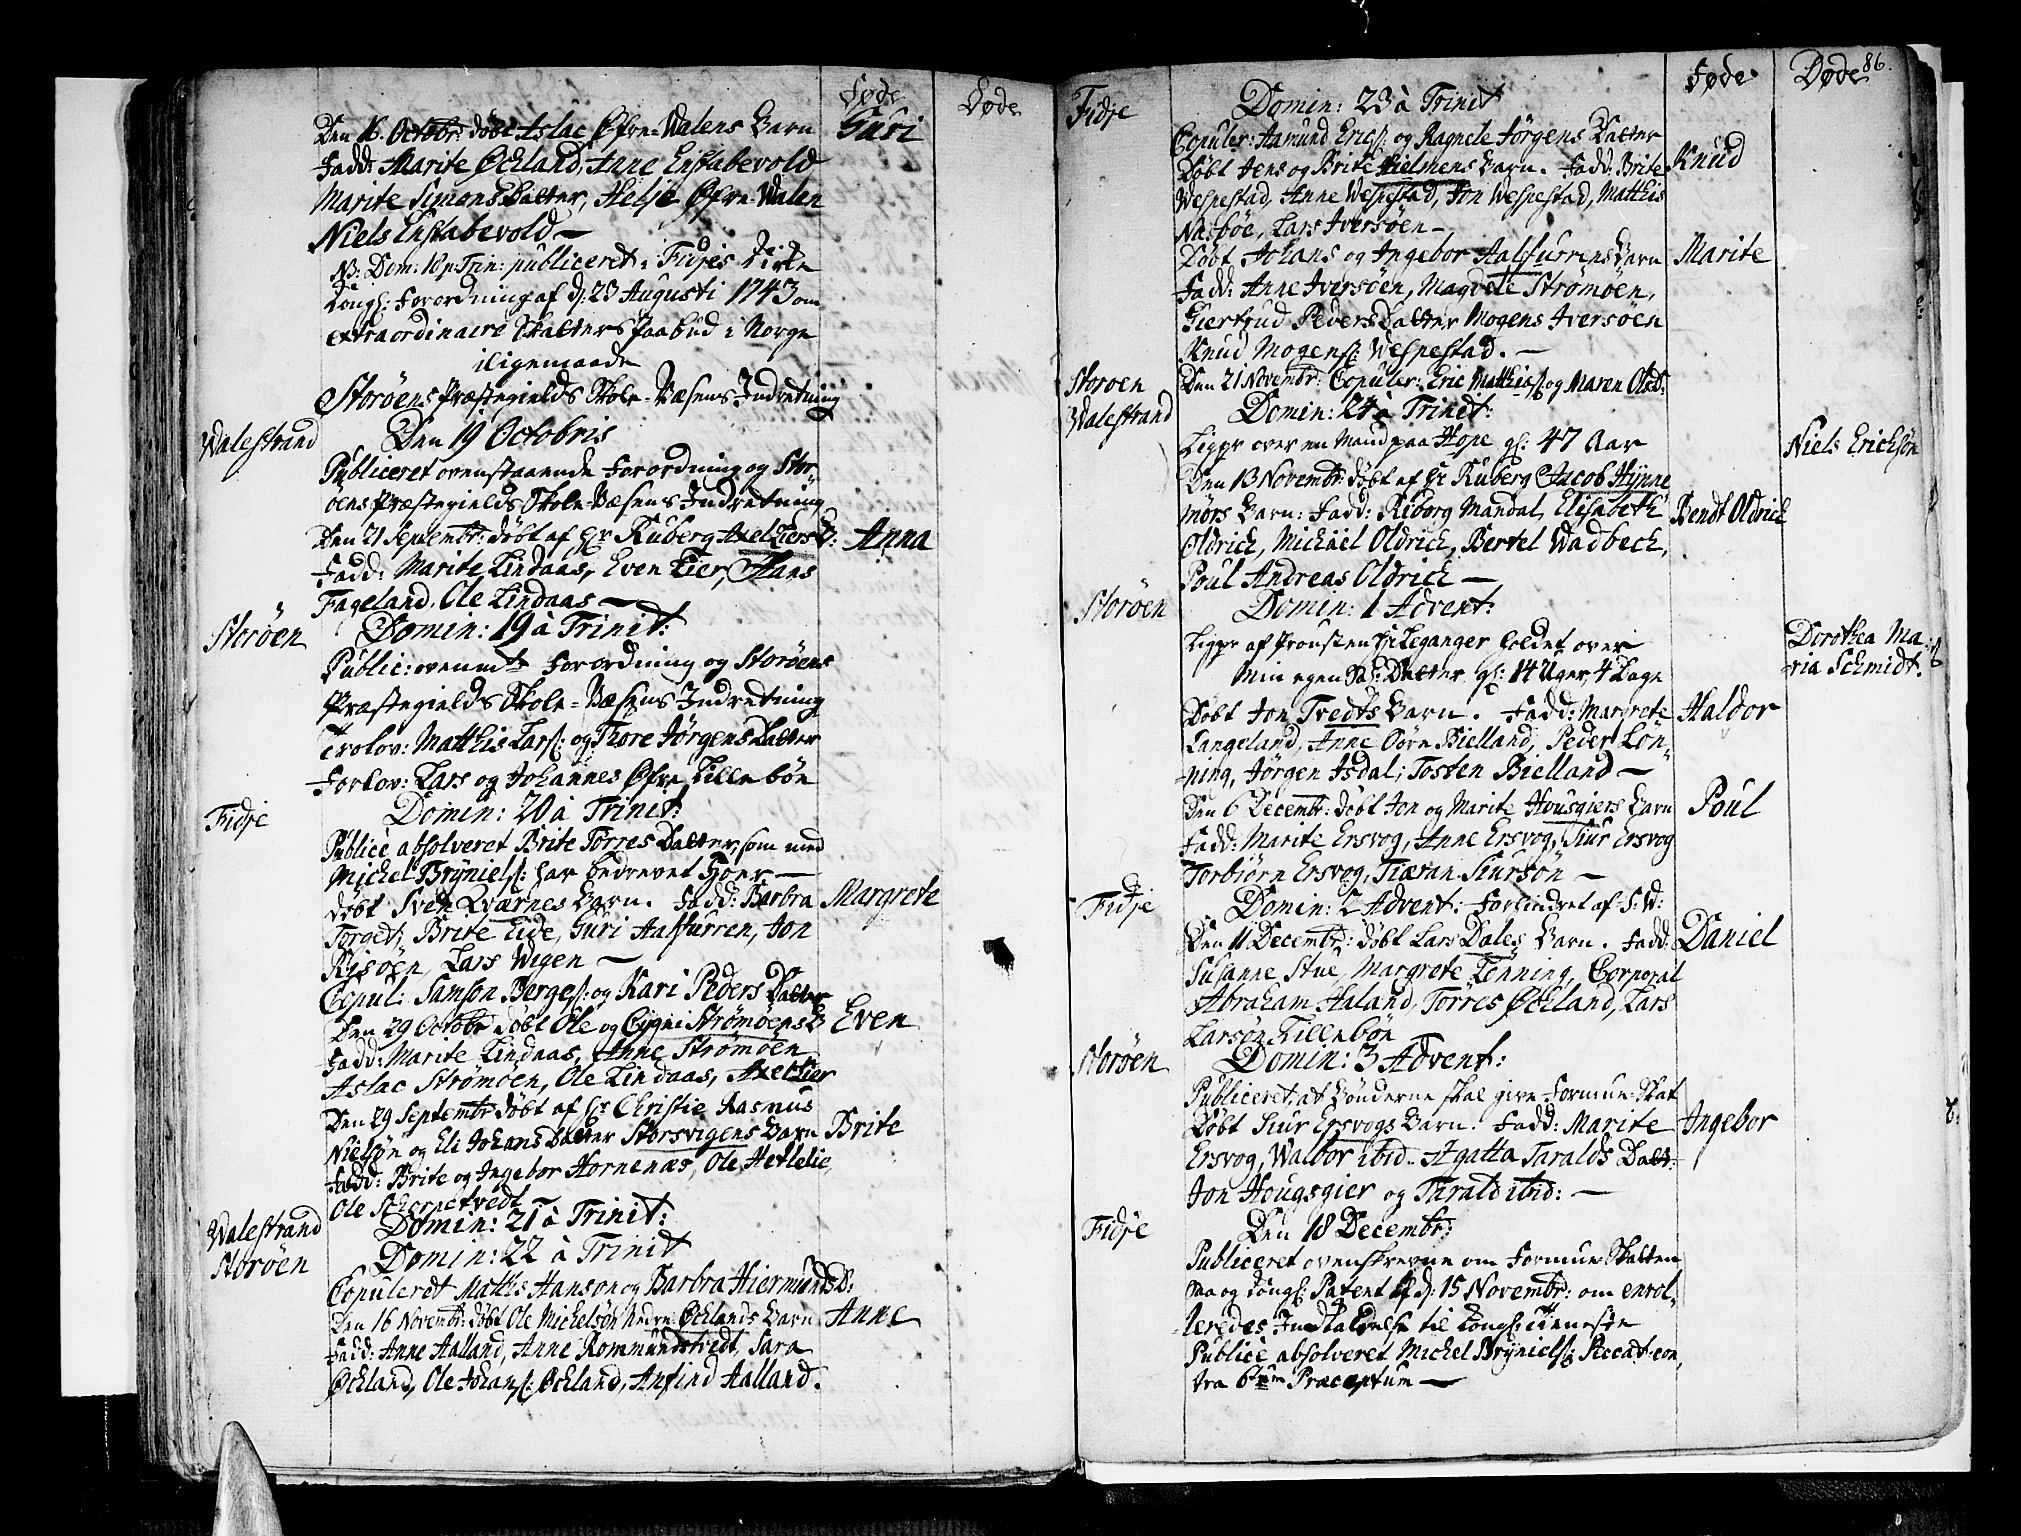 Føde
Døde
Den 16. Octobr: døbt Aslac Øfre-Walens Barn
Guri
Fadd: Marite Øckland, Anne Enstabevold
Marite Simons Datter, Helje Øfre-Walen
Niels Enstabevold —
NB: Dom: 18 p. Trin: publiceret i Fidjes Kirke
Kongl: Forordning af d: 23 Augusti 1743 om
extraordinaire Skatters Paabud i Norge
iligemaade
Storøens Præstegields Skole-Væsens Indretning
Walestrand
Den 19 Octobris
Publiceret ovenstaaende Forordning og Stor-
øens Præstegields Skole-Væsens Indretning
Den 21 Septembr: døbt af Hr Ruberg Axel Tiers B:
Anna
Fadd: Marite Lindaas, Even Tier, Hans
Fageland, Ole Lindaas —
Storøen
Domin: 19 à Trinit:
Public: ovenmte Forordning og Storøens
Præstegields Skole-Væsens Indretning
Trolov: Mathis Lars: og Thore Jørgens Datter
Forlov: Lars og Johannes Øfre Lillebøn
Fidje
Domin: 20 à Trinit:
Publicè absolveret Brite Torres Datter, som med
Michel Brÿniels: har bedrevet Hoer —
døbt Sven Qværnes Barn. Fadd: Barbra
Margrete
Torget, Brite Eide, Guri Aalfurren, Jon
Rÿsøen, Lars Wigen —
Copul: Samson Berges: og Kari Peders Datter
Den 29 Octobr døbt Ole og Signi Strømøens B
Even
Fadd: Marite Lindaas, Anne Strømøen
Aslac Strømøen, Ole Lindaas, Axel Tier
Den 29 Septembr døbt af Hr Christie Rasmus
Nielsøn og Eli Johans Datter Storsvigens Barn
Brite
Fadd: Brite og Ingebor Hornenæs, Ole Hetlelie
Ole Skiernetvedt —
Walestrand
Domin: 21 à Trinit:
Storøen
Domin: 22 à Trinit
Copuleret Mathis Hanson og Barbra Hiermunds D:
Den 16 Novembr: døbt Ole Michelsøn Nedre Øcklands Barn
Anne
Fadd: Anne Aalland, Anne Rommundstvedt, Sara
Øckland, Ole Johans: Øckland, Anfind Aalland.
Føde
Døde
86.
Fidje
Domin: 23 à Trinit
Copuler: Aamund Erics: og Ragnele Jørgens Datter
Døbt Jens og Brite Hielmens Barn. Fadd: Brite
Knud
Wespestad, Anne Wespestad, Jon Wespestad, Mathis
Næsbøe, Lars Iversøen —
Døbt Johans og Ingebor Aalfurrens Barn
Marite
Fadd: Anne Iversøen, Magdele Strømøen,
Giertrud Peders Datter Mogens Iversøen
Knud Mogens: Wespestad. —
Storøen
Den 21 Novembr: Copuler: Eric Mathis: og Maren Ols D:
Walestrand
Domin: 24 à Trinit:
Ligpr over en Mand paa Hope gl: 47 Aar
Niels Erichsøn
Den 13 Novembr: døbt af Hr Ruberg Jacob Hÿnne
mørs Barn: Fadd: Riborg Mandal, Elisabeth
Bendt Oldrich
Oldrich, Michael Oldrich, Bertel Wadbech,
Poul Andreas Oldrich —
Storøen
Domin: 1 Advent:
Ligpr af Provsten Hr Leganger holdet over
Dorothea Ma-
Min egen Datter, gl: 14 Uger, 4 Dage
ria Schmidt.
Døbt Jon Tvedts Barn. Fadd: Margrete
Haldor
Langeland, Anne Sørn Bielland, Peder Løn-
ning, Jørgen Isdal, Tosten Bielland —
Den 6 Decembr: døbt Jon og Marite Housgiers Barn
Poul
Fadd: Marite Ersvog, Anne Ersvog, Siur Ersvog
Torbiørn Ersvog, Tiæran Siursøn —
Fidje
Domin: 2 Advent: Forhindret af S: W:
Den 11 Decembr: døbt Lars Dales Barn. Fadd:
Daniel
Susanne Stue, Margrete Lønning, Corporal
Abraham Haland, Torres Øckland, Lars
Larsøn Lillebøn
Storøen
Domin: 3 Advent:
Publiceret, at Bønderne skal give Formue-Skat
Døbt Siur Ersvogs Barn. Fadd: Marite
Ingebor
Ersvog, Walbor ibid. Agatta Taralds Datt:
Jon Hougsgier og Tarald ibid: —
Fidje
Den 18 Decembr:
Publiceret ovenskrevne om Formue-Skatten
saa og Kongl: Patent af d: 15 Novembr: om enrol-
leredes Indkaldelse til Kongl: Tieneste
Publicè absolveret Michel Brÿniels: Peccat: con
tra 6tum Præceptum —